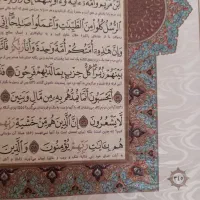 ابْنَ مَرْيَمَ وَأُمَّهُ ءَايَةً وَءَاوَيْنَٰهُمَآ
الرُّسُلُ كُلُوا مِنَ الطَّيِّبَٰتِ وَاعْمَلُوا صَٰلِحًا إِنِّي
وَإِنَّ هَٰذِهِ أُمَّتُكُمْ أُمَّةً وَٰحِدَةً وَأَنَا
بَيْنَهُمْ زُبُرًا كُلُّ حِزْبٍ بِمَا لَدَيْهِمْ فَرِحُونَ
أَيَحْسَبُونَ أَنَّمَا نُمِدُّهُم بِهِ مِن مَّالٍ وَبَنِينَ
لَا يَشْعُرُونَ إِنَّ الَّذِينَ هُم مِّنْ خَشْيَةِ رَبِّهِم
هُم بِـَٔايَٰتِ رَبِّهِمْ يُؤْمِنُونَ وَالَّذِينَ
٣٤٥